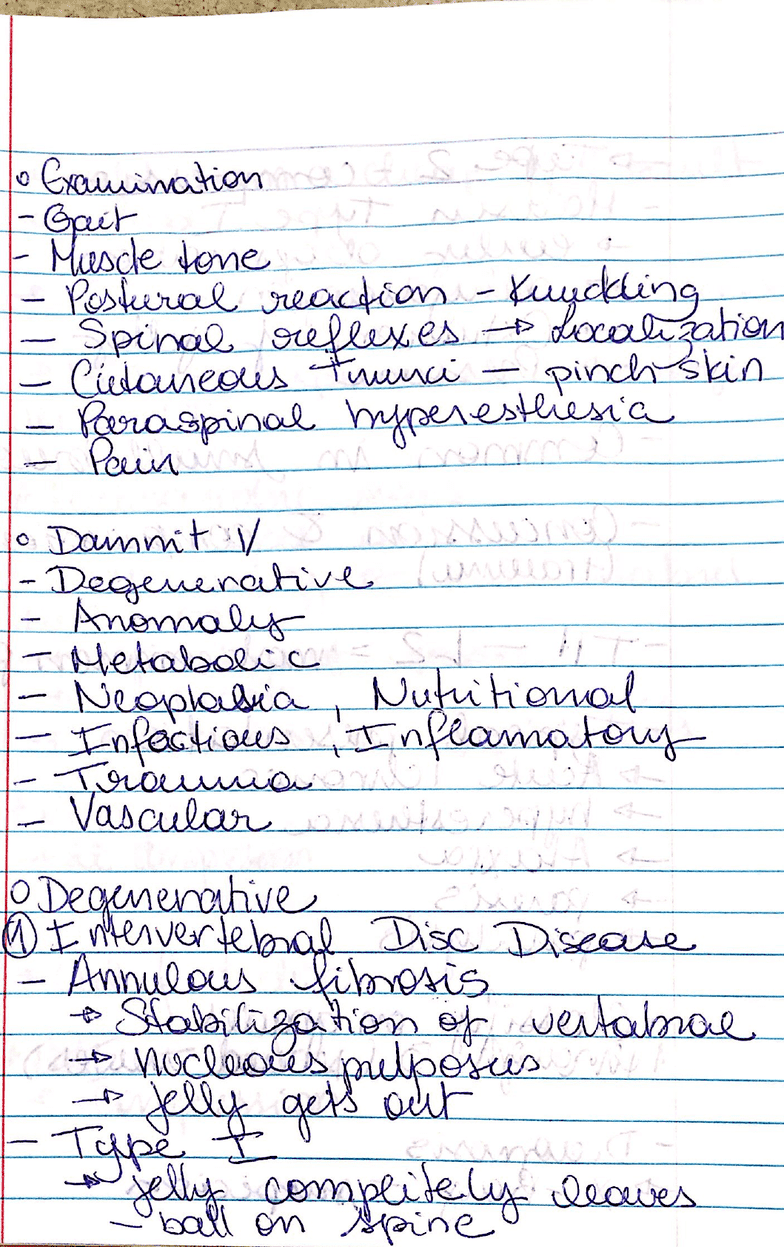 o Examination
- Gait
- Muscle tone
- Postural reaction - Knuckling
- Spinal reflexes → Localization
- Cutaneous - pinch skin
- Paraspinal hyperesthesia
- Pain
o Damnit V
- Degenerative
- Anomaly
- Metabolic
- Neoplasia, Nutritional
- Infectious, Inflamatory
- Trauma
- Vascular
o Degenerative
① Intervertebral Disc Disease
- Annulous fibrosis
→ Stabilization of vertabrae
→ nucleous pulposus
→ jelly gets out
- Type I
→ jelly complitely leaves
- ball on spine